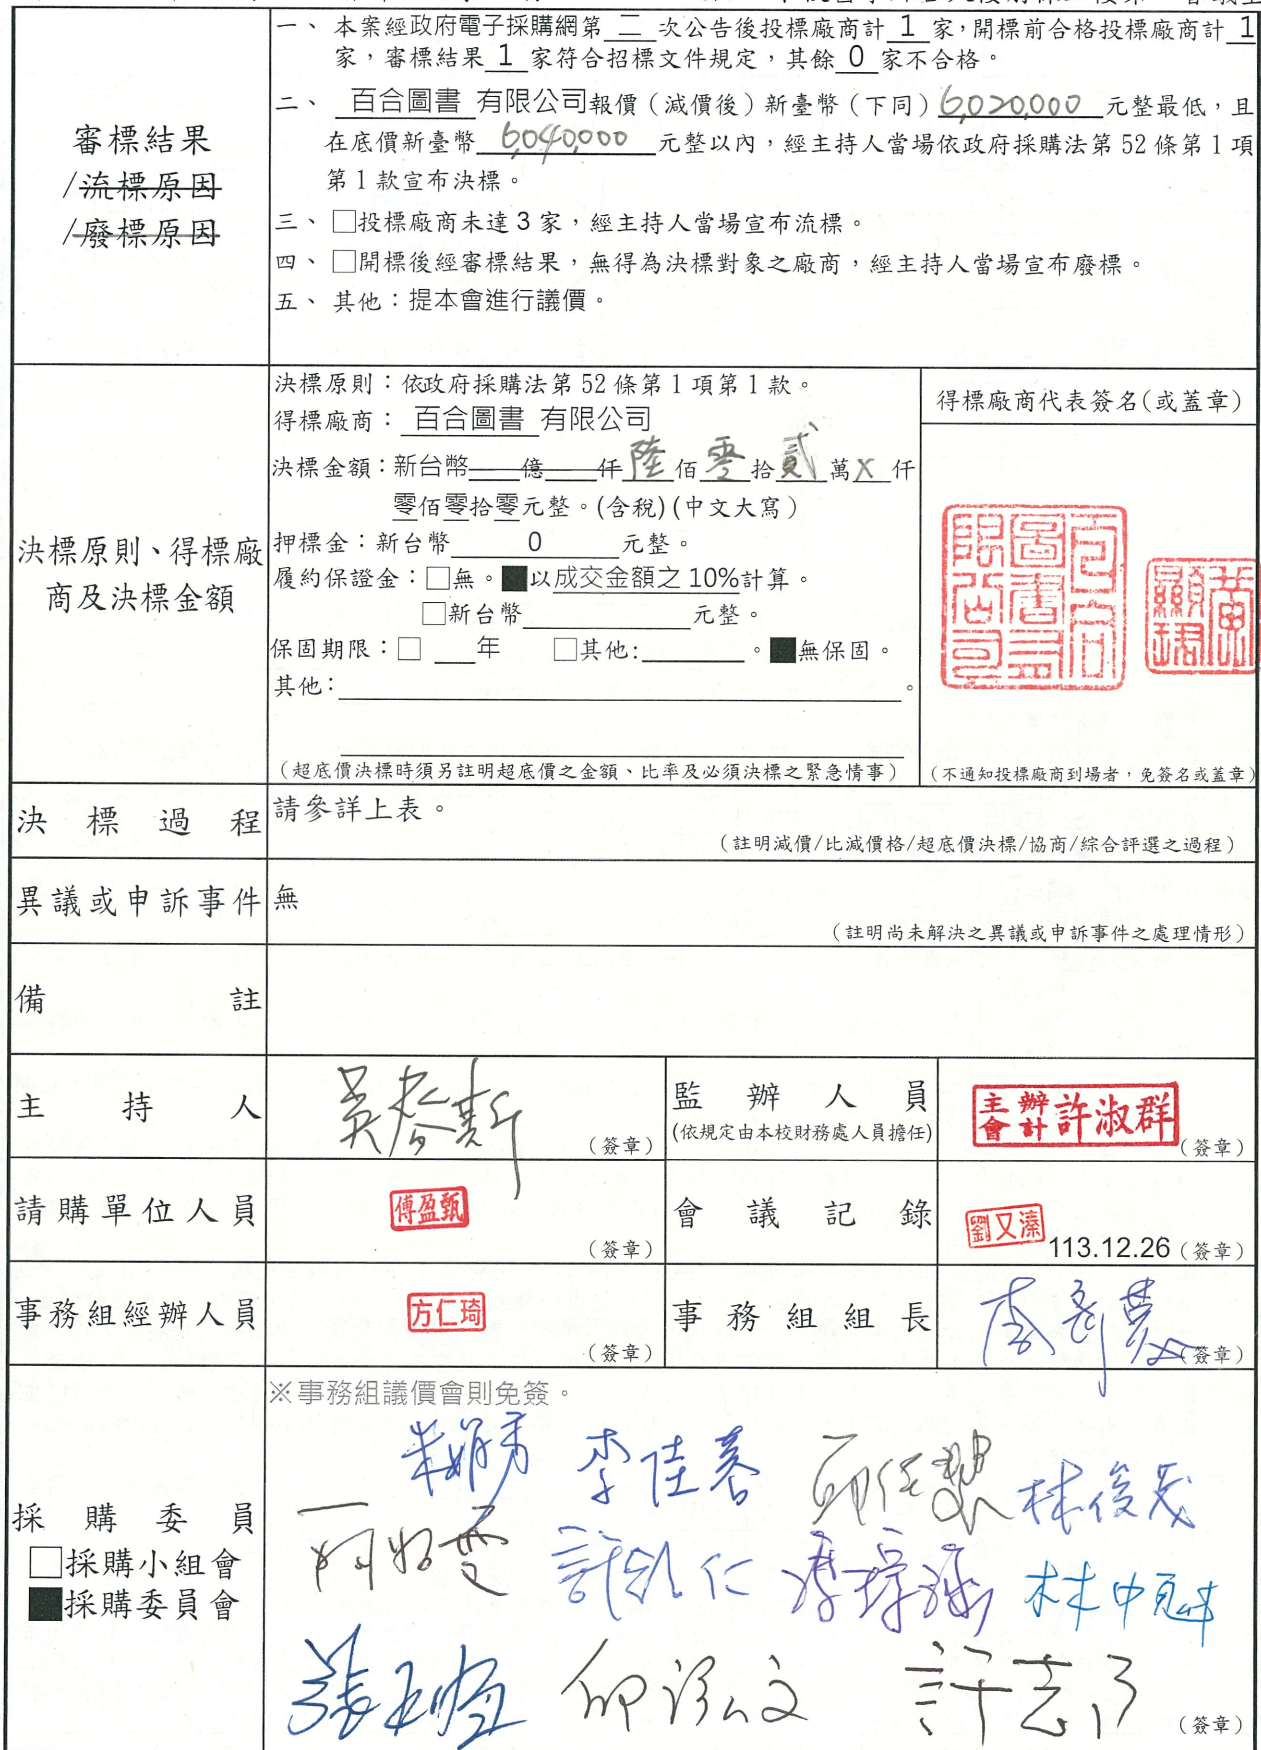 一、本案經政府電子採購網第 二 次公告後投標廠商計 1 家，開標前合格投標廠商計 1
家，審標結果 1 家符合招標文件規定，其餘 0 家不合格。
審標結果
/流標原因
/廢標原因
二、百合圖書 有限公司報價（減價後）新臺幣（下同）6,020,000 元整最低，且
在底價新臺幣 6,040,000 元整以內，經主持人當場依政府採購法第 52 條第 1 項
第 1 款宣布決標。
三、□投標廠商未達 3 家，經主持人當場宣布流標。
四、□開標後經審標結果，無得為決標對象之廠商，經主持人當場宣布廢標。
五、其他：提本會進行議價。
決標原則、得標廠
商及決標金額
決標原則：依政府採購法第 52 條第 1 項第 1 款。
得標廠商：百合圖書 有限公司
決標金額：新台幣 億 仟陸佰零拾貳萬X仟
零佰零拾零元整。(含稅)(中文大寫)
押標金：新台幣 0 元整。
履約保證金：□無。■以成交金額之 10%計算。
□新台幣 元整。
保固期限：□ 年 □其他: 。■無保固。
其他: 。
（超底價決標時須另註明超底價之金額、比率及必須決標之緊急情事）
得標廠商代表簽名(或蓋章)
百合圖書有限公司
黃顯珺
（不通知投標廠商到場者，免簽名或蓋章）
決標過程 請參詳上表。
（註明減價/比減價格/超底價決標/協商/綜合評選之過程）
異議或申訴事件 無
（註明尚未解決之異議或申訴事件之處理情形）
備註
主持人 （簽章）
監辦人員
(依規定由本校財務處人員擔任)
主辦會計 許淑群 （簽章）
請購單位人員 傅盈甄 （簽章）
會議記錄 劉又溱 113.12.26（簽章）
事務組經辦人員 方仁琦 （簽章）
事務組組長 （簽章）
採購委員
□採購小組會
■採購委員會
※事務組議價會則免簽。
李佳蓉 林俊茂
（簽章）